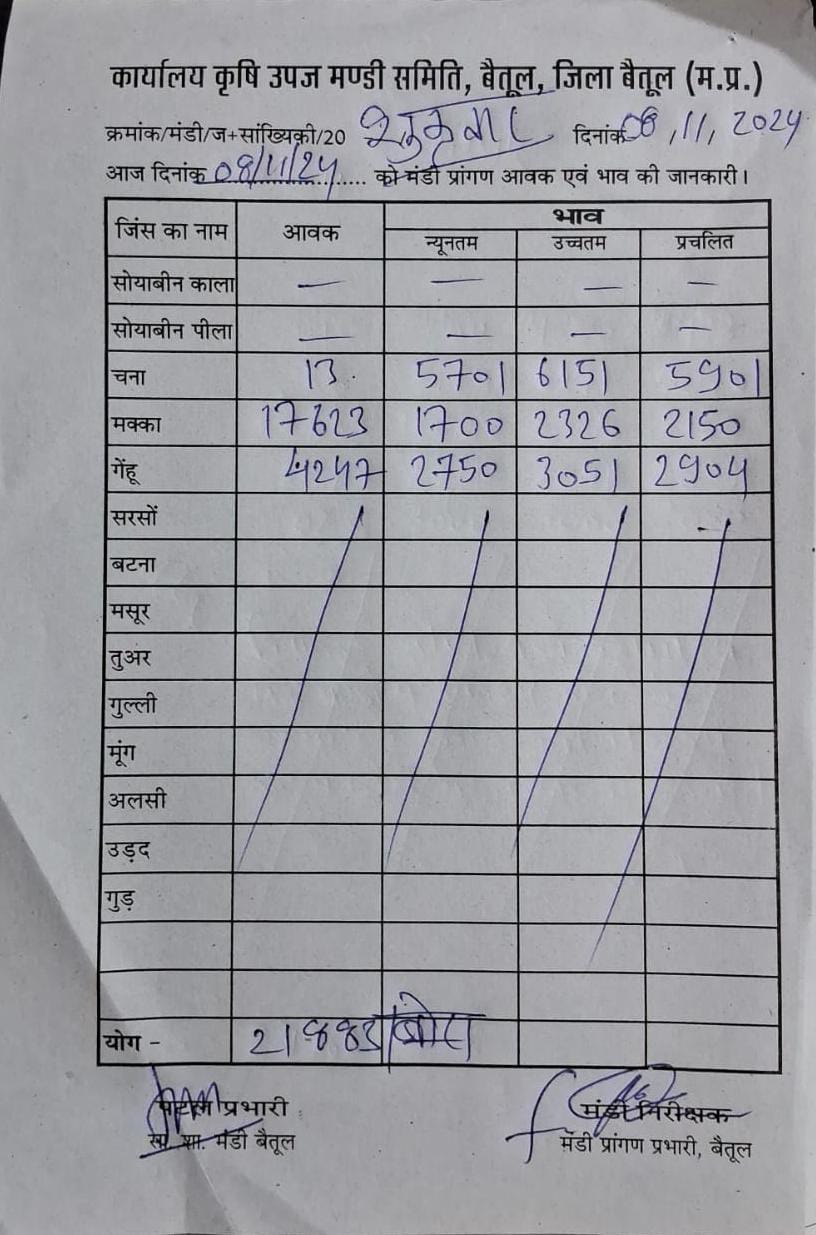 कार्यालय कृषि उपज मण्डी समिति, बैतूल, जिला बैतूल (म.प्र.)
क्रमांक/मंडी/ज+सांख्यिकी/20 शुक्रवार दिनांक 08/11/2024
आज दिनांक 08/11/24 को मंडी प्रांगण आवक एवं भाव की जानकारी।
जिंस का नाम आवक भाव
न्यूनतम उच्चतम प्रचलित
सोयाबीन काला — — — —
सोयाबीन पीला — — — —
चना 13 5701 6151 5901
मक्का 17623 1700 2326 2150
गेंहू 4247 2750 3051 2904
सरसों
बटना
मसूर
तुअर
गुल्ली
मूंग
अलसी
उड़द
गुड़
योग - 21883 बोरा
प्रभारी मंडी निरीक्षक
मंडी बैतूल मंडी प्रांगण प्रभारी, बैतूल